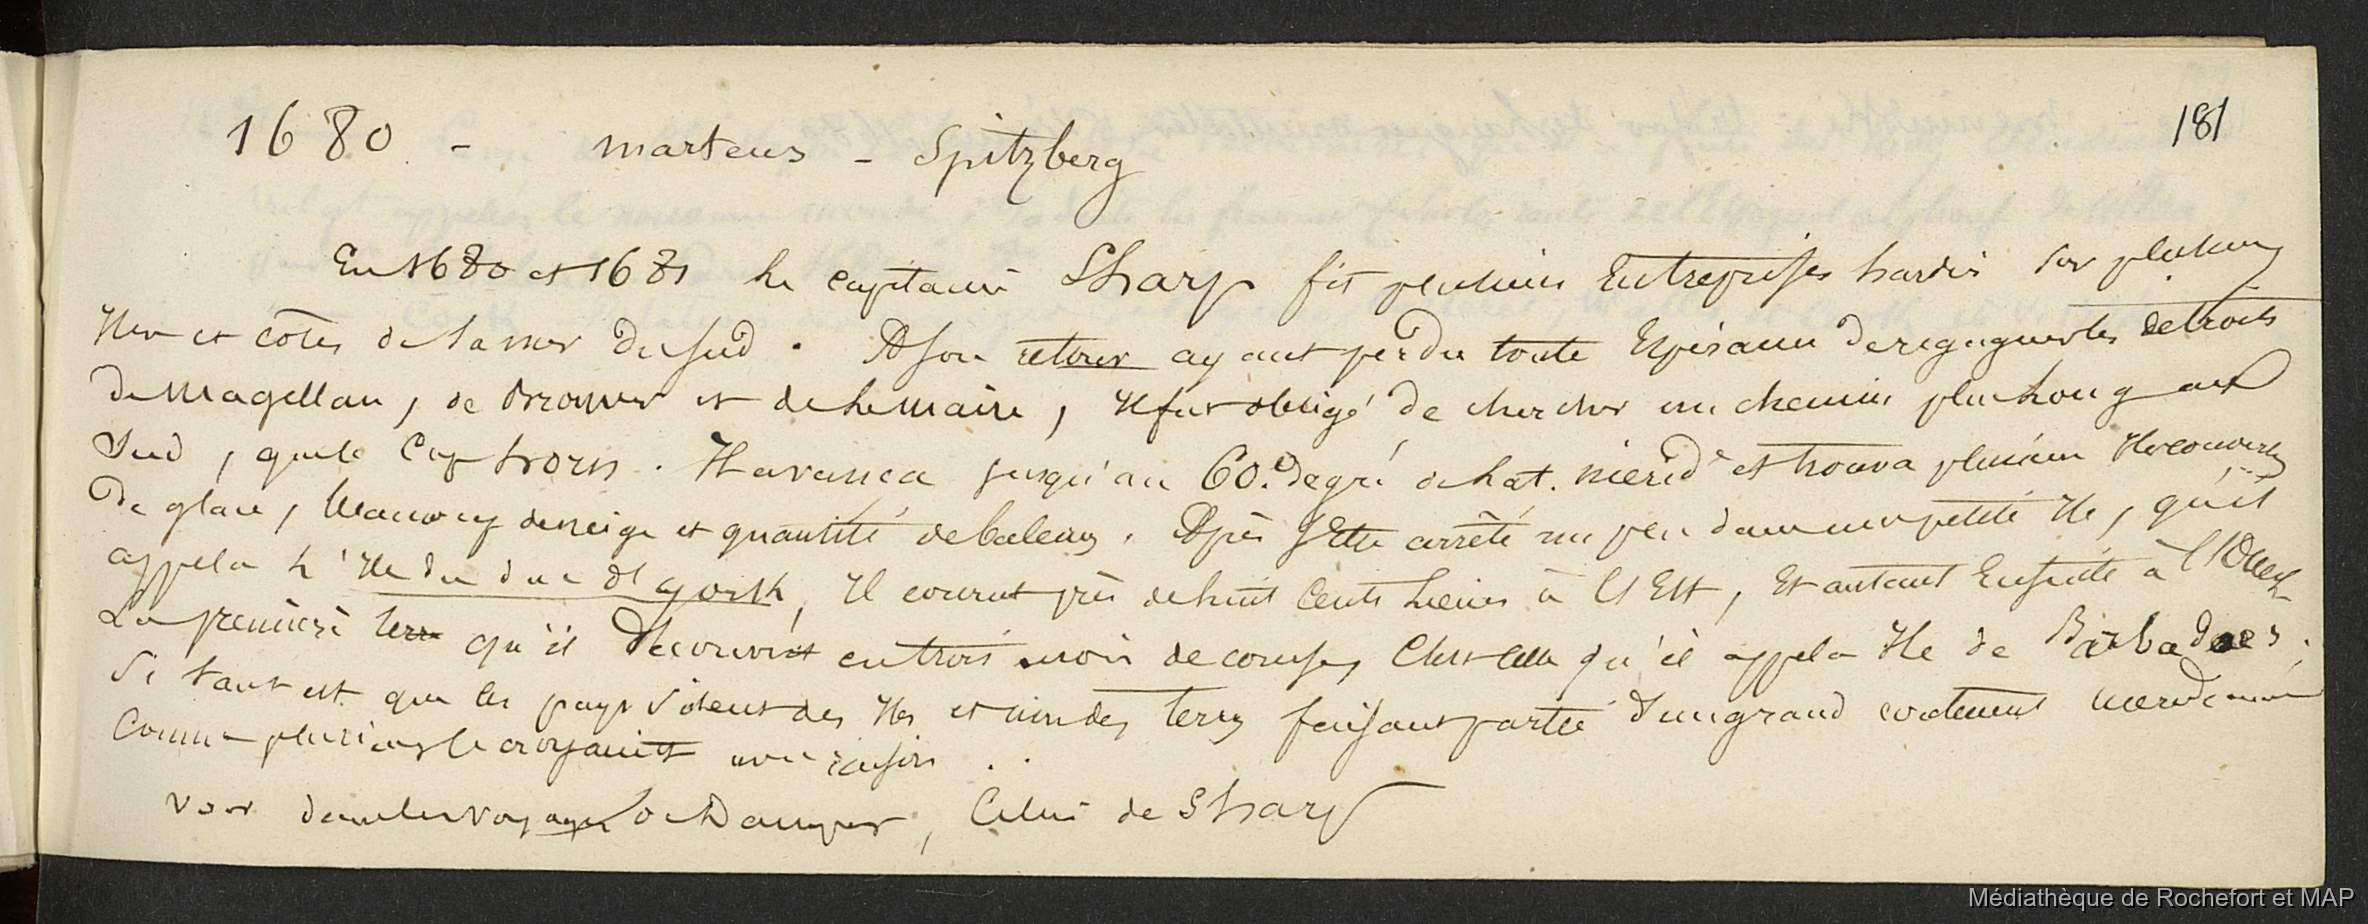 181
1680 - Martens - Spitzberg
En 1680 et 1681 le capitaine Sharp fit plusieurs Entreprises hardies sur plusieurs
Iles et côtes de la mer du sud. A son retour ayant perdu toute Espérance de regagner les détroits
de Magellan, de Brouwer et de le maire, Il fut obligé de chercher un chemin plus long au
Sud, que le Cap horn. Il avança jusqu'au 60.e degré de lat. mérid.e et trouva plusieurs Iles couvertes
De glace, beaucoup de neige et quantité de baleines. Après s'être arrêté un peu dans une petite Ile, qu'il
appela l'Ile du duc d'york, Il courut près de huit Cents lieues à l'Est, Et autant Ensuite à l'Ouest
La première terre qu'il découvrit en trois mois de courses, C'est celle qu'il appela Ile de Barbadoes.
Si tant est que les pays soient des Iles et non des terres faisant partie d'un grand continent
Comme plusieurs le croyaient avec raison . .
voir dans les voyages de Dampier, Celui de Sharp
Médiathèque de Rochefort et MAP